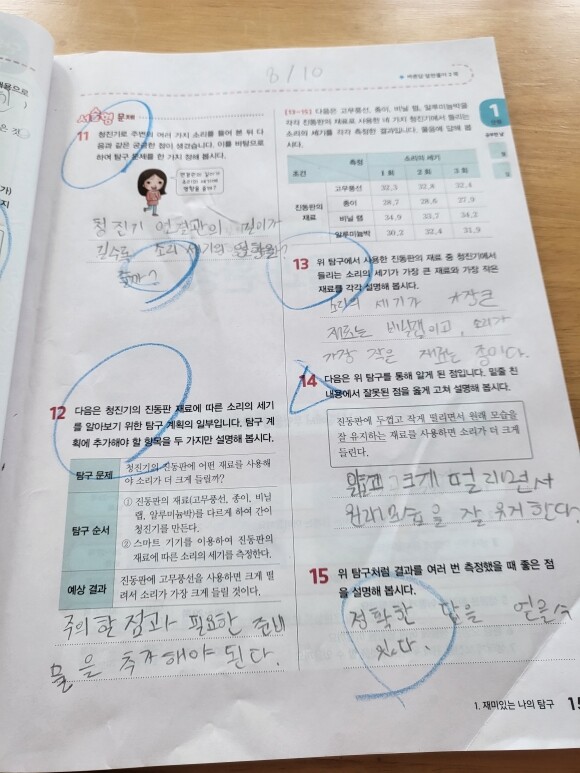 8/10
바른답·알찬풀이 3쪽
서술형 문제
11 청진기로 주변의 여러 가지 소리를 들어 본 뒤 다
음과 같은 궁금한 점이 생겼습니다. 이를 바탕으로
하여 탐구 문제를 한 가지 정해 봅시다.
연결관의 길이가
소리의 세기에
영향을 줄까?
청진기 연결관의 길이가
길수록 소리 세기의
줄까?
12 다음은 청진기의 진동판 재료에 따른 소리의 세기
를 알아보기 위한 탐구 계획의 일부입니다. 탐구 계
획에 추가해야 할 항목을 두 가지만 설명해 봅시다.
탐구 문제 청진기의 진동판에 어떤 재료를 사용해
야 소리가 더 크게 들릴까?
탐구 순서 ① 진동판의 재료(고무풍선, 종이, 비닐
랩, 알루미늄박)를 다르게 하여 간이
청진기를 만든다.
② 스마트 기기를 이용하여 진동판의
재료에 따른 소리의 세기를 측정한다.
예상 결과 진동판에 고무풍선을 사용하면 크게 떨
려서 소리가 가장 크게 들릴 것이다.
주의 할 점과 필요한 준비
물을 추가해야 된다.
[13~15] 다음은 고무풍선, 종이, 비닐 랩, 알루미늄박을
각각 진동판의 재료로 사용한 네 가지 청진기에서 들리는
소리의 세기를 각각 측정한 결과입니다. 물음에 답해 봅
시다.
측정 소리의 세기
조건 1회 2회 3회
진동판의 재료
고무풍선 32.3 32.8 32.4
종이 28.7 28.6 27.9
비닐 랩 34.9 33.7 34.2
알루미늄박 30.2 32.4 31.9
13 위 탐구에서 사용한 진동판의 재료 중 청진기에서
들리는 소리의 세기가 가장 큰 재료와 가장 작은
재료를 각각 설명해 봅시다.
소리의 세기가 가장큰
재료는 비닐랩이고, 소리가
가장 작은 재료는 종이다.
14 다음은 위 탐구를 통해 알게 된 점입니다. 밑줄 친
내용에서 잘못된 점을 옳게 고쳐 설명해 봅시다.
진동판에 두껍고 작게 떨리면서 원래 모습을
잘 유지하는 재료를 사용하면 소리가 더 크게
들린다.
크게 떨리면서
원래모습을 잘 유지한다.
15 위 탐구처럼 결과를 여러 번 측정했을 때 좋은 점
을 설명해 봅시다.
정확한 답을 얻을수
있다.
1
단원
공부한 날
월
일
1. 재미있는 나의 탐구 15